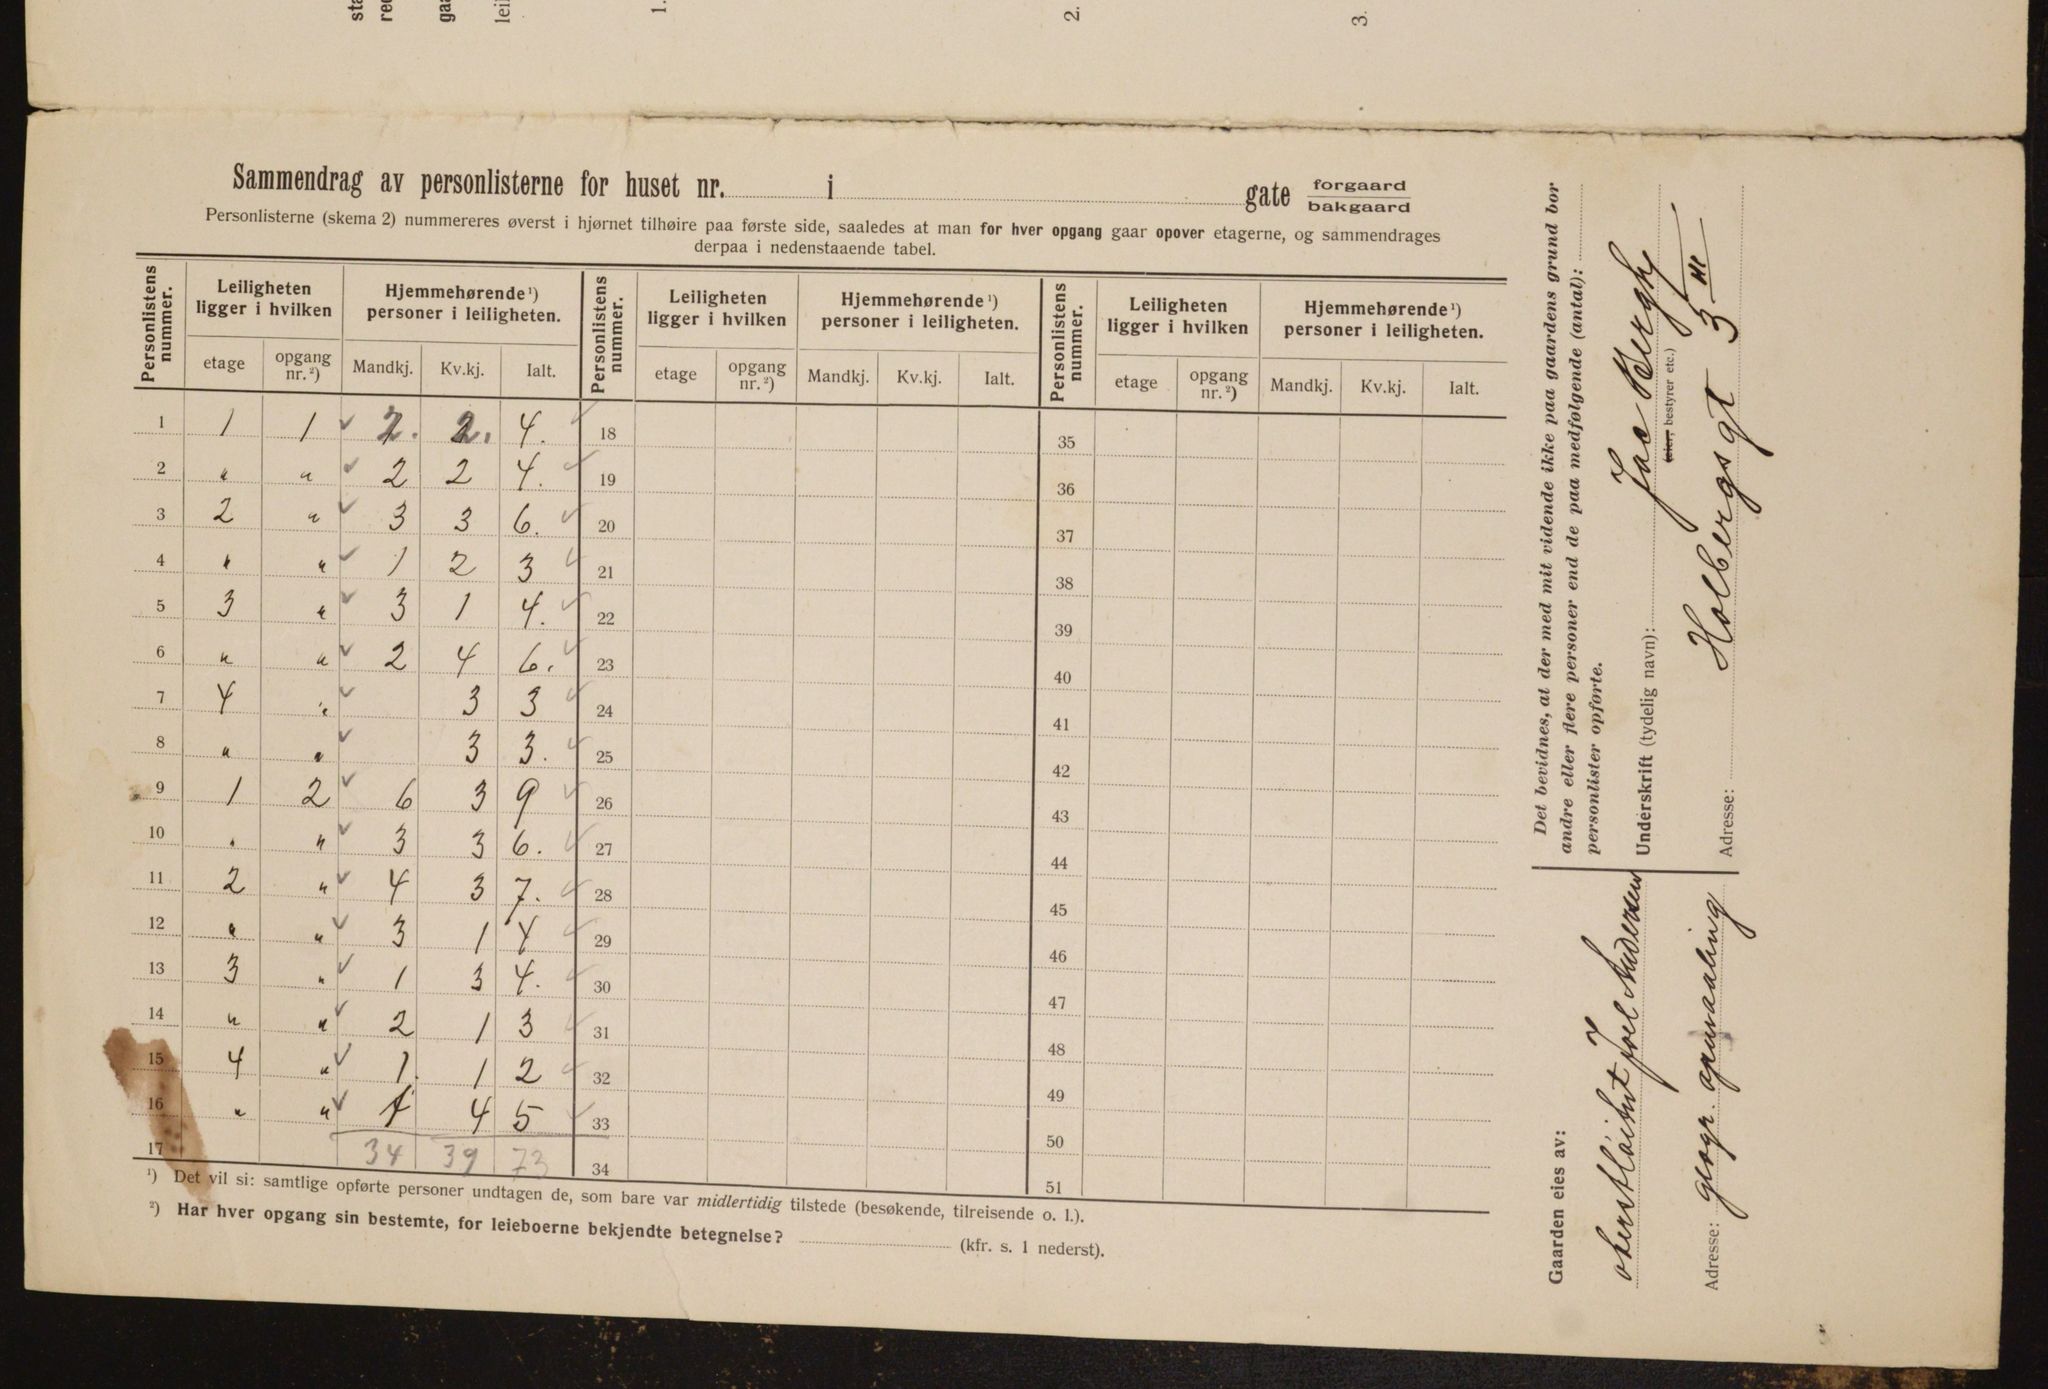 sta
red
gaa
leil
1.
2.
3.
Sammendrag av personlisterne for huset nr. i gate forgaard
bakgaard
Personlisterne (skema 2) nummereres øverst i hjørnet tilhøire paa første side, saaledes at man for hver opgang gaar opover etagerne, og sammendrages
derpaa i nedenstaaende tabel.
Personlistens nummer. Leiligheten ligger i hvilken Hjemmehørende ¹) personer i leiligheten. Personlistens nummer. Leiligheten ligger i hvilken Hjemmehørende ¹) personer i leiligheten. Personlistens nummer. Leiligheten ligger i hvilken Hjemmehørende ¹) personer i leiligheten.
etage opgang nr. ²) Mandkj. Kv.kj. Ialt. etage opgang nr. ²) Mandkj. Kv.kj. Ialt. etage opgang nr. ²) Mandkj. Kv.kj. Ialt.
1 1 1 ✓ 2. 2. 4. ✓ 18 35
2 " " ✓ 2 2 4. ✓ 19 36
3 2 " ✓ 3 3 6. ✓ 20 37
4 " " ✓ 1 2 3 ✓ 21 38
5 3 " ✓ 3 1 4. ✓ 22 39
6 " " ✓ 2 4 6. ✓ 23 40
7 4 " ✓ 3 3 ✓ 24 41
8 " " ✓ 3 3. ✓ 25 42
9 1 2 ✓ 6 3 9 ✓ 26 43
10 " " ✓ 3 3 6. ✓ 27 44
11 2 " ✓ 4 3 7. ✓ 28 45
12 " " ✓ 3 1 4 ✓ 29 46
13 3 " ✓ 1 3 4. ✓ 30 47
14 " " ✓ 2 1 3 ✓ 31 48
15 4 " ✓ 1. 1 2 ✓ 32 49
16 " " ✓ 1 4 5 ✓ 33 50
17 34 39 73 34 51
¹) Det vil si: samtlige opførte personer undtagen de, som bare var midlertidig tilstede (besøkende, tilreisende o. l.).
²) Har hver opgang sin bestemte, for leieboerne bekjendte betegnelse? (kfr. s. 1 nederst).
Det bevidnes, at der med mit vidende ikke paa gaardens grund bor
andre eller flere personer end de paa medfølgende (antal):
personlister opførte.
Underskrift (tydelig navn): Jac Bergh
(eier, bestyrer etc.)
Adresse: Holbergs gt 3 III
Gaarden eies av:
oberstløitnt Joel Andersen
Adresse: geogr. opmaaling